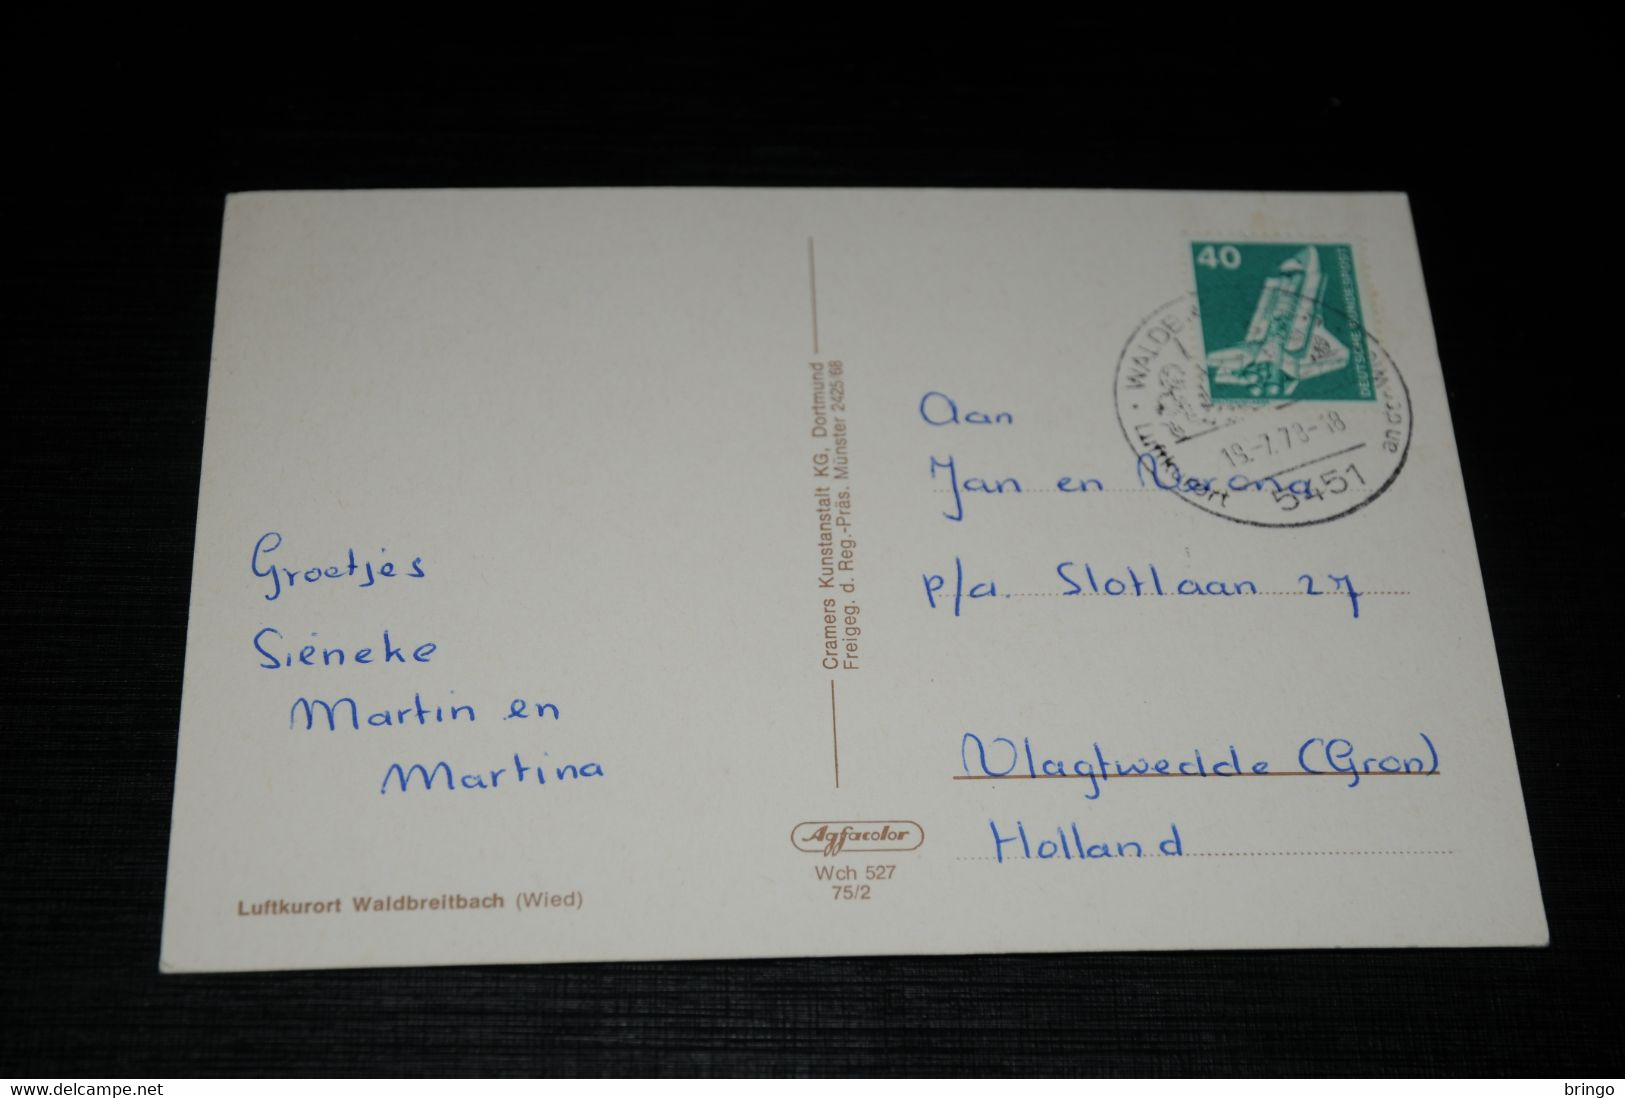 40
DEUTSCHE BUNDESPOST
Luftkurort
19.-7.78-18
5451
an der Wied
Aan
Jan en Verona
p/a. Slotlaan 27
Vlagtwedde (Gron)
Holland
Groetjes
Siëneke
Martin en
Martina
Cramers Kunstanstalt KG, Dortmund
Freigeg. d. Reg.-Präs. Münster 2425/68
Agfacolor
Wch 527
75/2
Luftkurort Waldbreitbach (Wied)
www.delcampe.net
bringo